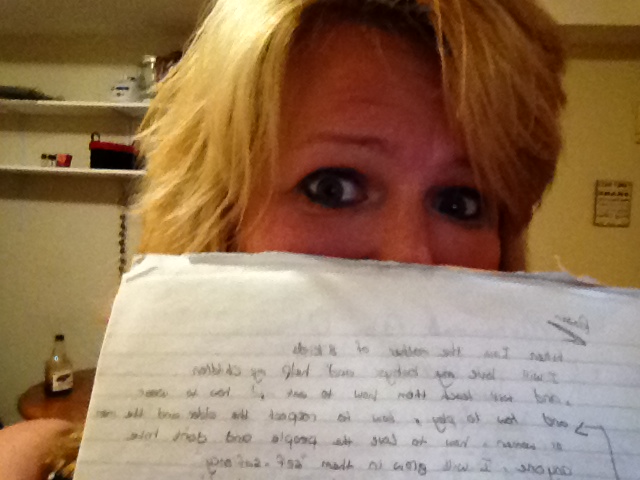 when I am the mother of 8 kids
I will love my babys and help my children
and will teach them how to eat, how to wear
and how to play, how to respect the older and the
or women, how to love the people and don't hate
anyone, I will grow in them